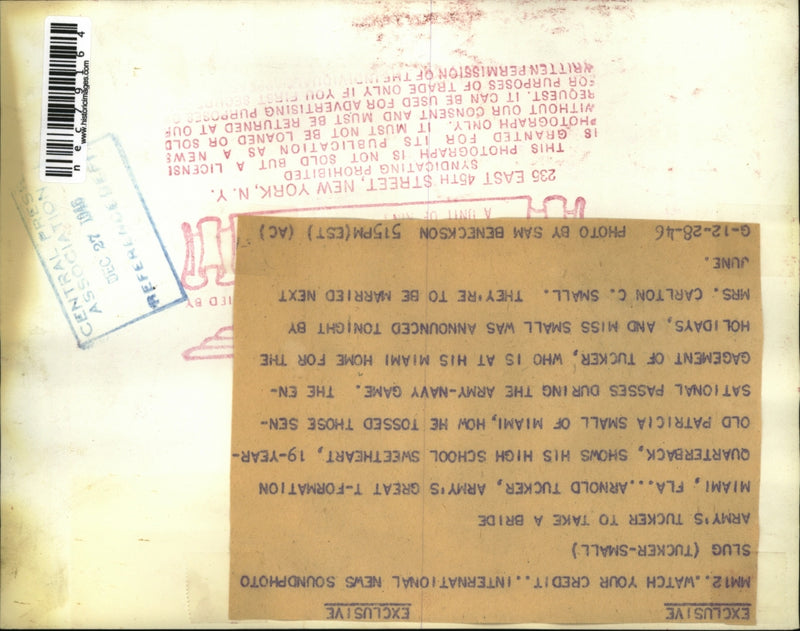 EXCLUSIVE EXCLUSIVE
MM12..WATCH YOUR CREDIT..INTERNATIONAL NEWS SOUNDPHOTO
SLUG (TUCKER-SMALL)
ARMY'S TUCKER TO TAKE A BRIDE
MIAMI, FLA...ARNOLD TUCKER, ARMY'S GREAT T-FORMATION
QUARTERBACK, SHOWS HIS HIGH SCHOOL SWEETHEART, 19-YEAR-
OLD PATRICIA SMALL OF MIAMI, HOW HE TOSSED THOSE SEN-
SATIONAL PASSES DURING THE ARMY-NAVY GAME. THE EN-
GAGEMENT OF TUCKER, WHO IS AT HIS MIAMI HOME FOR THE
HOLIDAYS, AND MISS SMALL WAS ANNOUNCED TONIGHT BY
MRS. CARLTON C. SMALL. THEY'RE TO BE MARRIED NEXT
JUNE.
G-12-28-46 PHOTO BY SAM BENECKSON 515PM(EST) (AC)
A UNIT OF
235 EAST 45TH STREET, NEW YORK, N. Y.
SYNDICATING PROHIBITED
THIS PHOTOGRAPH IS NOT SOLD BUT A LICENSE
IS GRANTED FOR ITS PUBLICATION AS A NEWS
PHOTOGRAPH ONLY. IT MUST NOT BE LOANED OR SOLD
WITHOUT OUR CONSENT AND MUST BE RETURNED AT OUR
REQUEST. IT CAN BE USED FOR ADVERTISING PURPOSES
FOR PURPOSES OF TRADE ONLY IF YOU FIRST
WRITTEN PERMISSION OF THE INDIVIDUAL
CENTRAL PRESS
ASSOCIATION
DEC 27 1946
REFERENCE DEPT
nec79164
www.historicimages.com